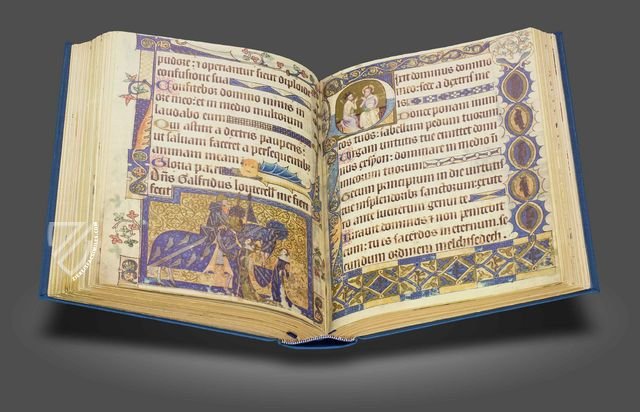 sicut
confusione sua
Confitebor domino nimis in
ore meo: et in medio multorum
laudabo eum
Qui astitit a dextris pauperis:
ut salvam faceret a persequentibus
animam meam
Gloria patri
Dns Galfridus louterell me fieri
fecit
Dixit dominus domino
meo: sede a dextris me
Donec ponam inimi
cos tuos: scabellum pedum tuorum
Virgam virtutis tue emittet domi
nus ex syon: dominare in medio i
nimicorum tuorum
Tecum principium in die virtutis
tue in splendoribus sanctorum: ex ute
ro ante luciferum genui te
Iuravit dominus et non penitebit
eum: tu es sacerdos in eternum: se
cundum ordinem melchisedech